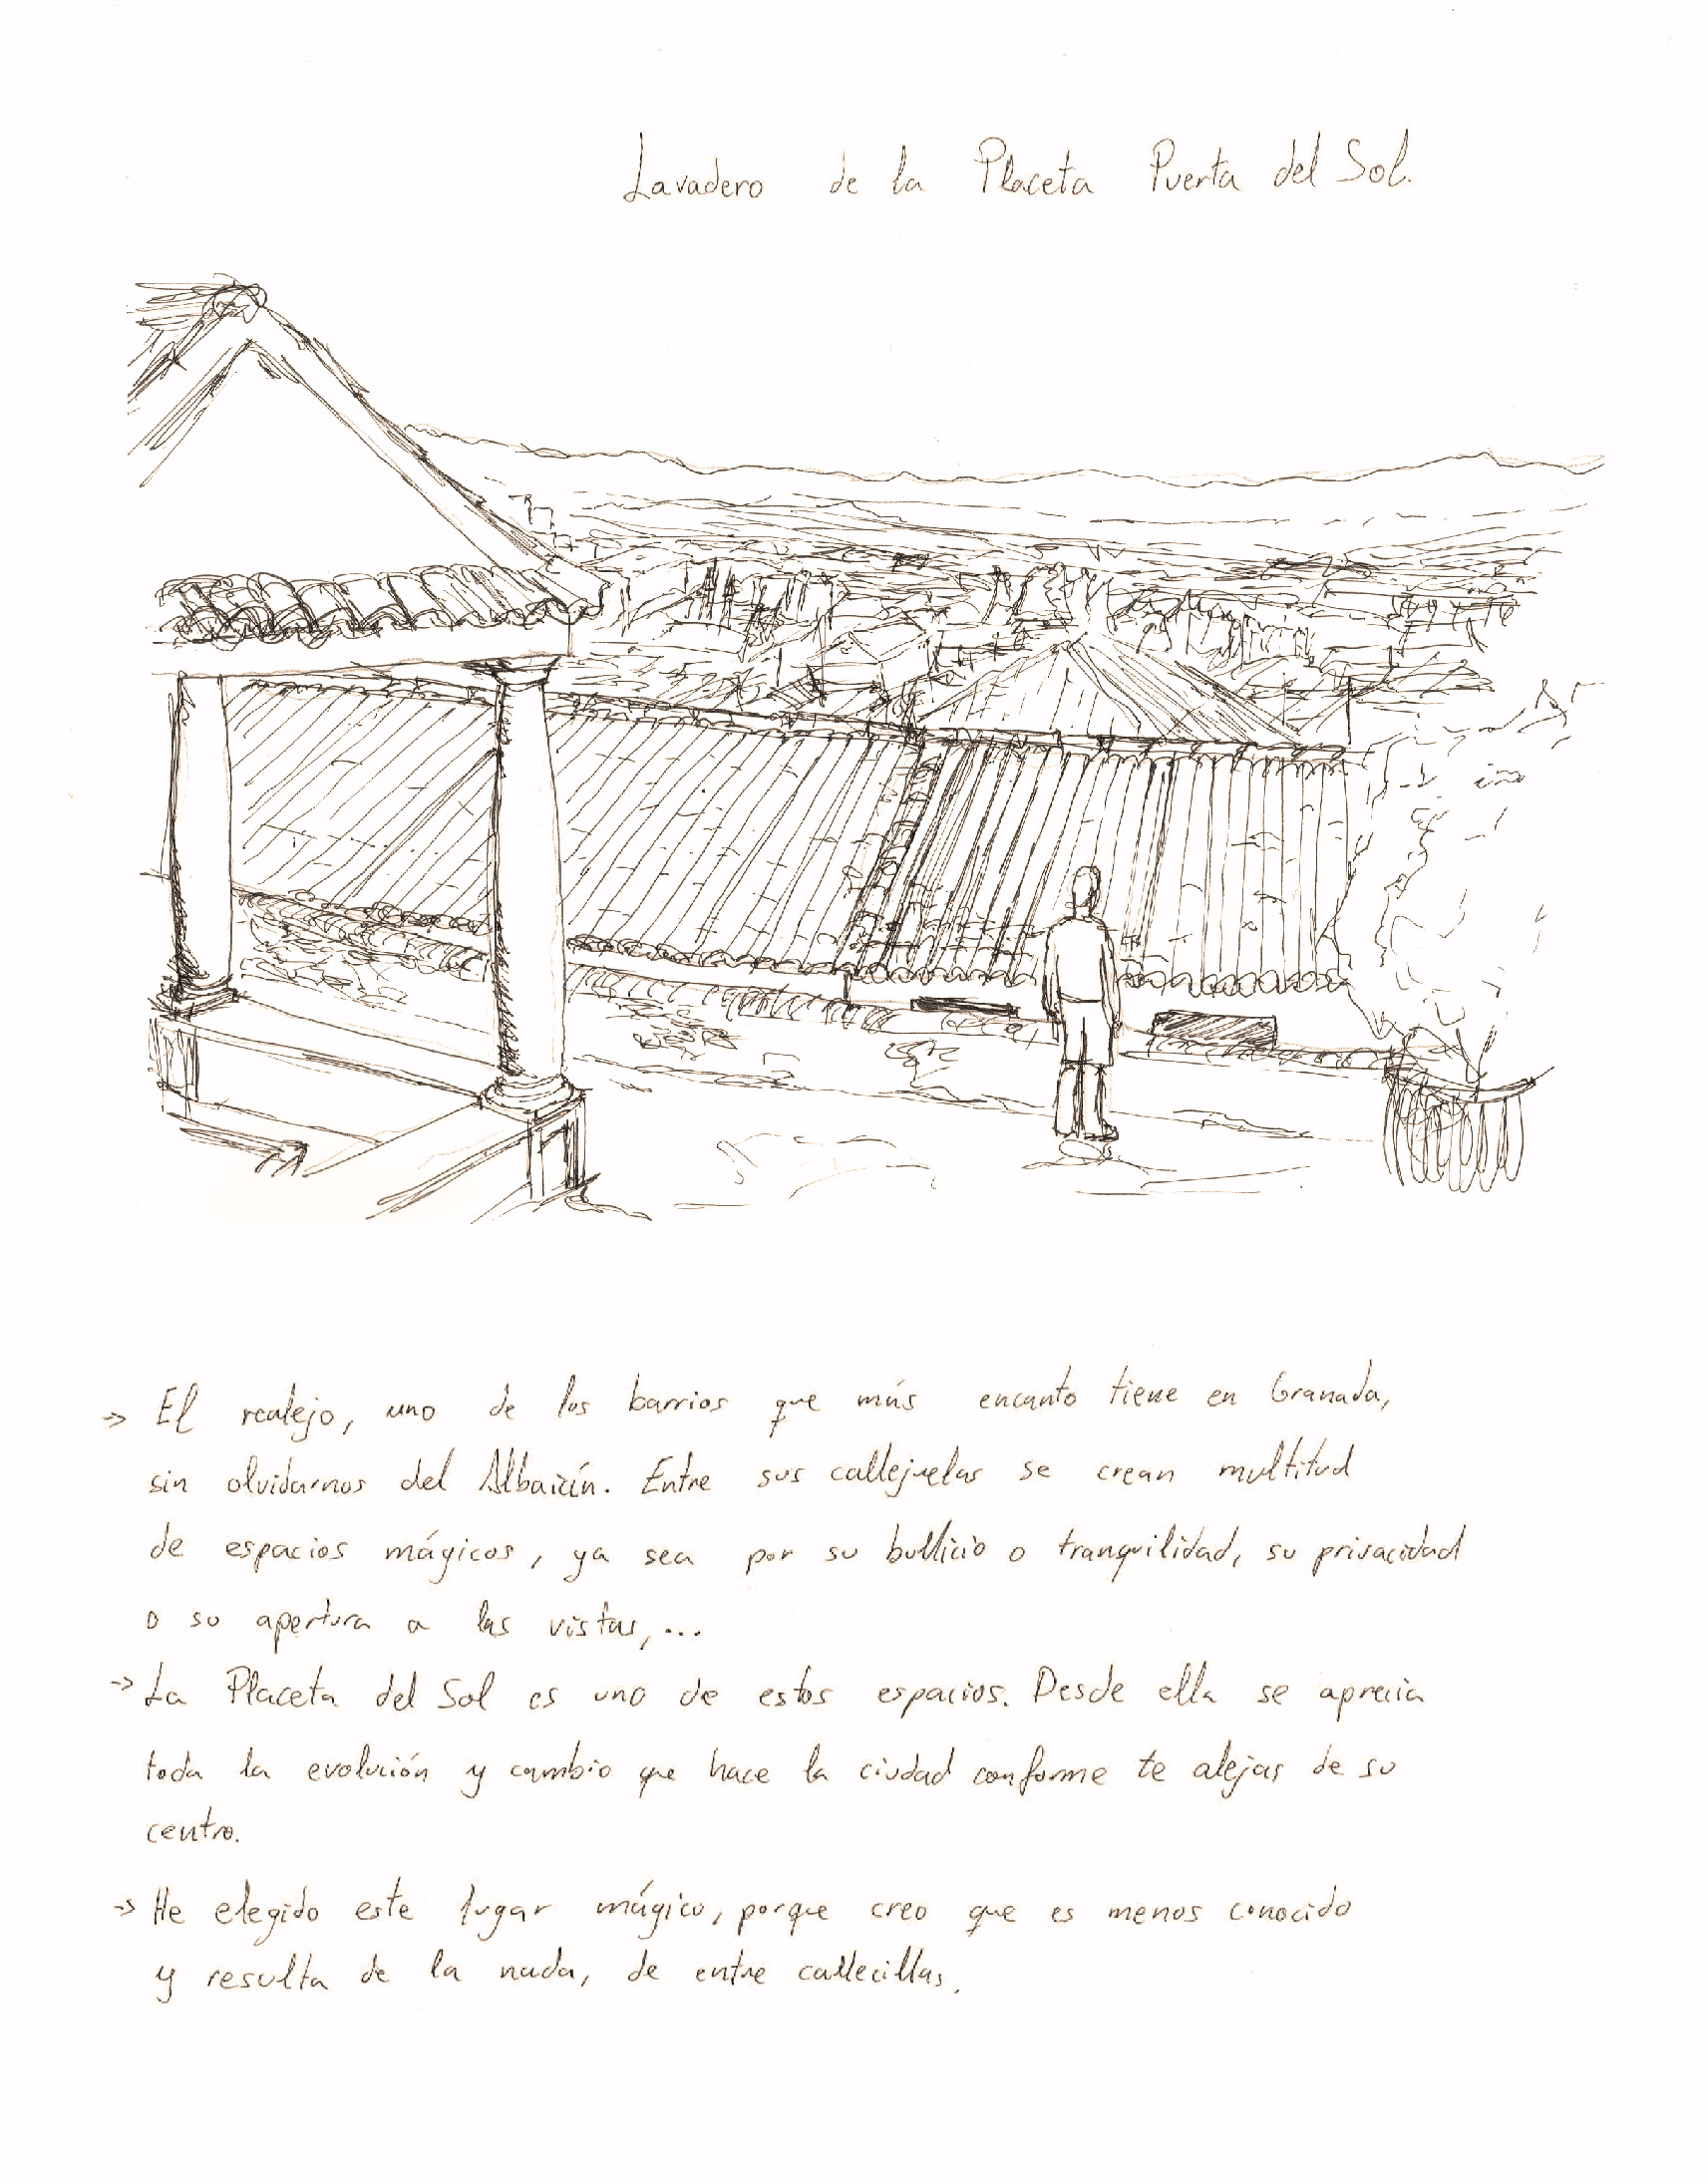 Lavadero de la Placeta Puerta del Sol.
-> El realejo, uno de los barrios que más encanto tiene en Granada,
sin olvidarnos del Albaicín. Entre sus callejuelas se crean multitud
de espacios mágicos, ya sea por su bullicio o tranquilidad, su privacidad
o su apertura a las vistas,...
-> La Placeta del Sol es uno de estos espacios. Desde ella se aprecia
toda la evolución y cambio que hace la ciudad conforme te alejas de su
centro.
-> He elegido este lugar mágico, porque creo que es menos conocido
y resulta de la nada, de entre callecillas.